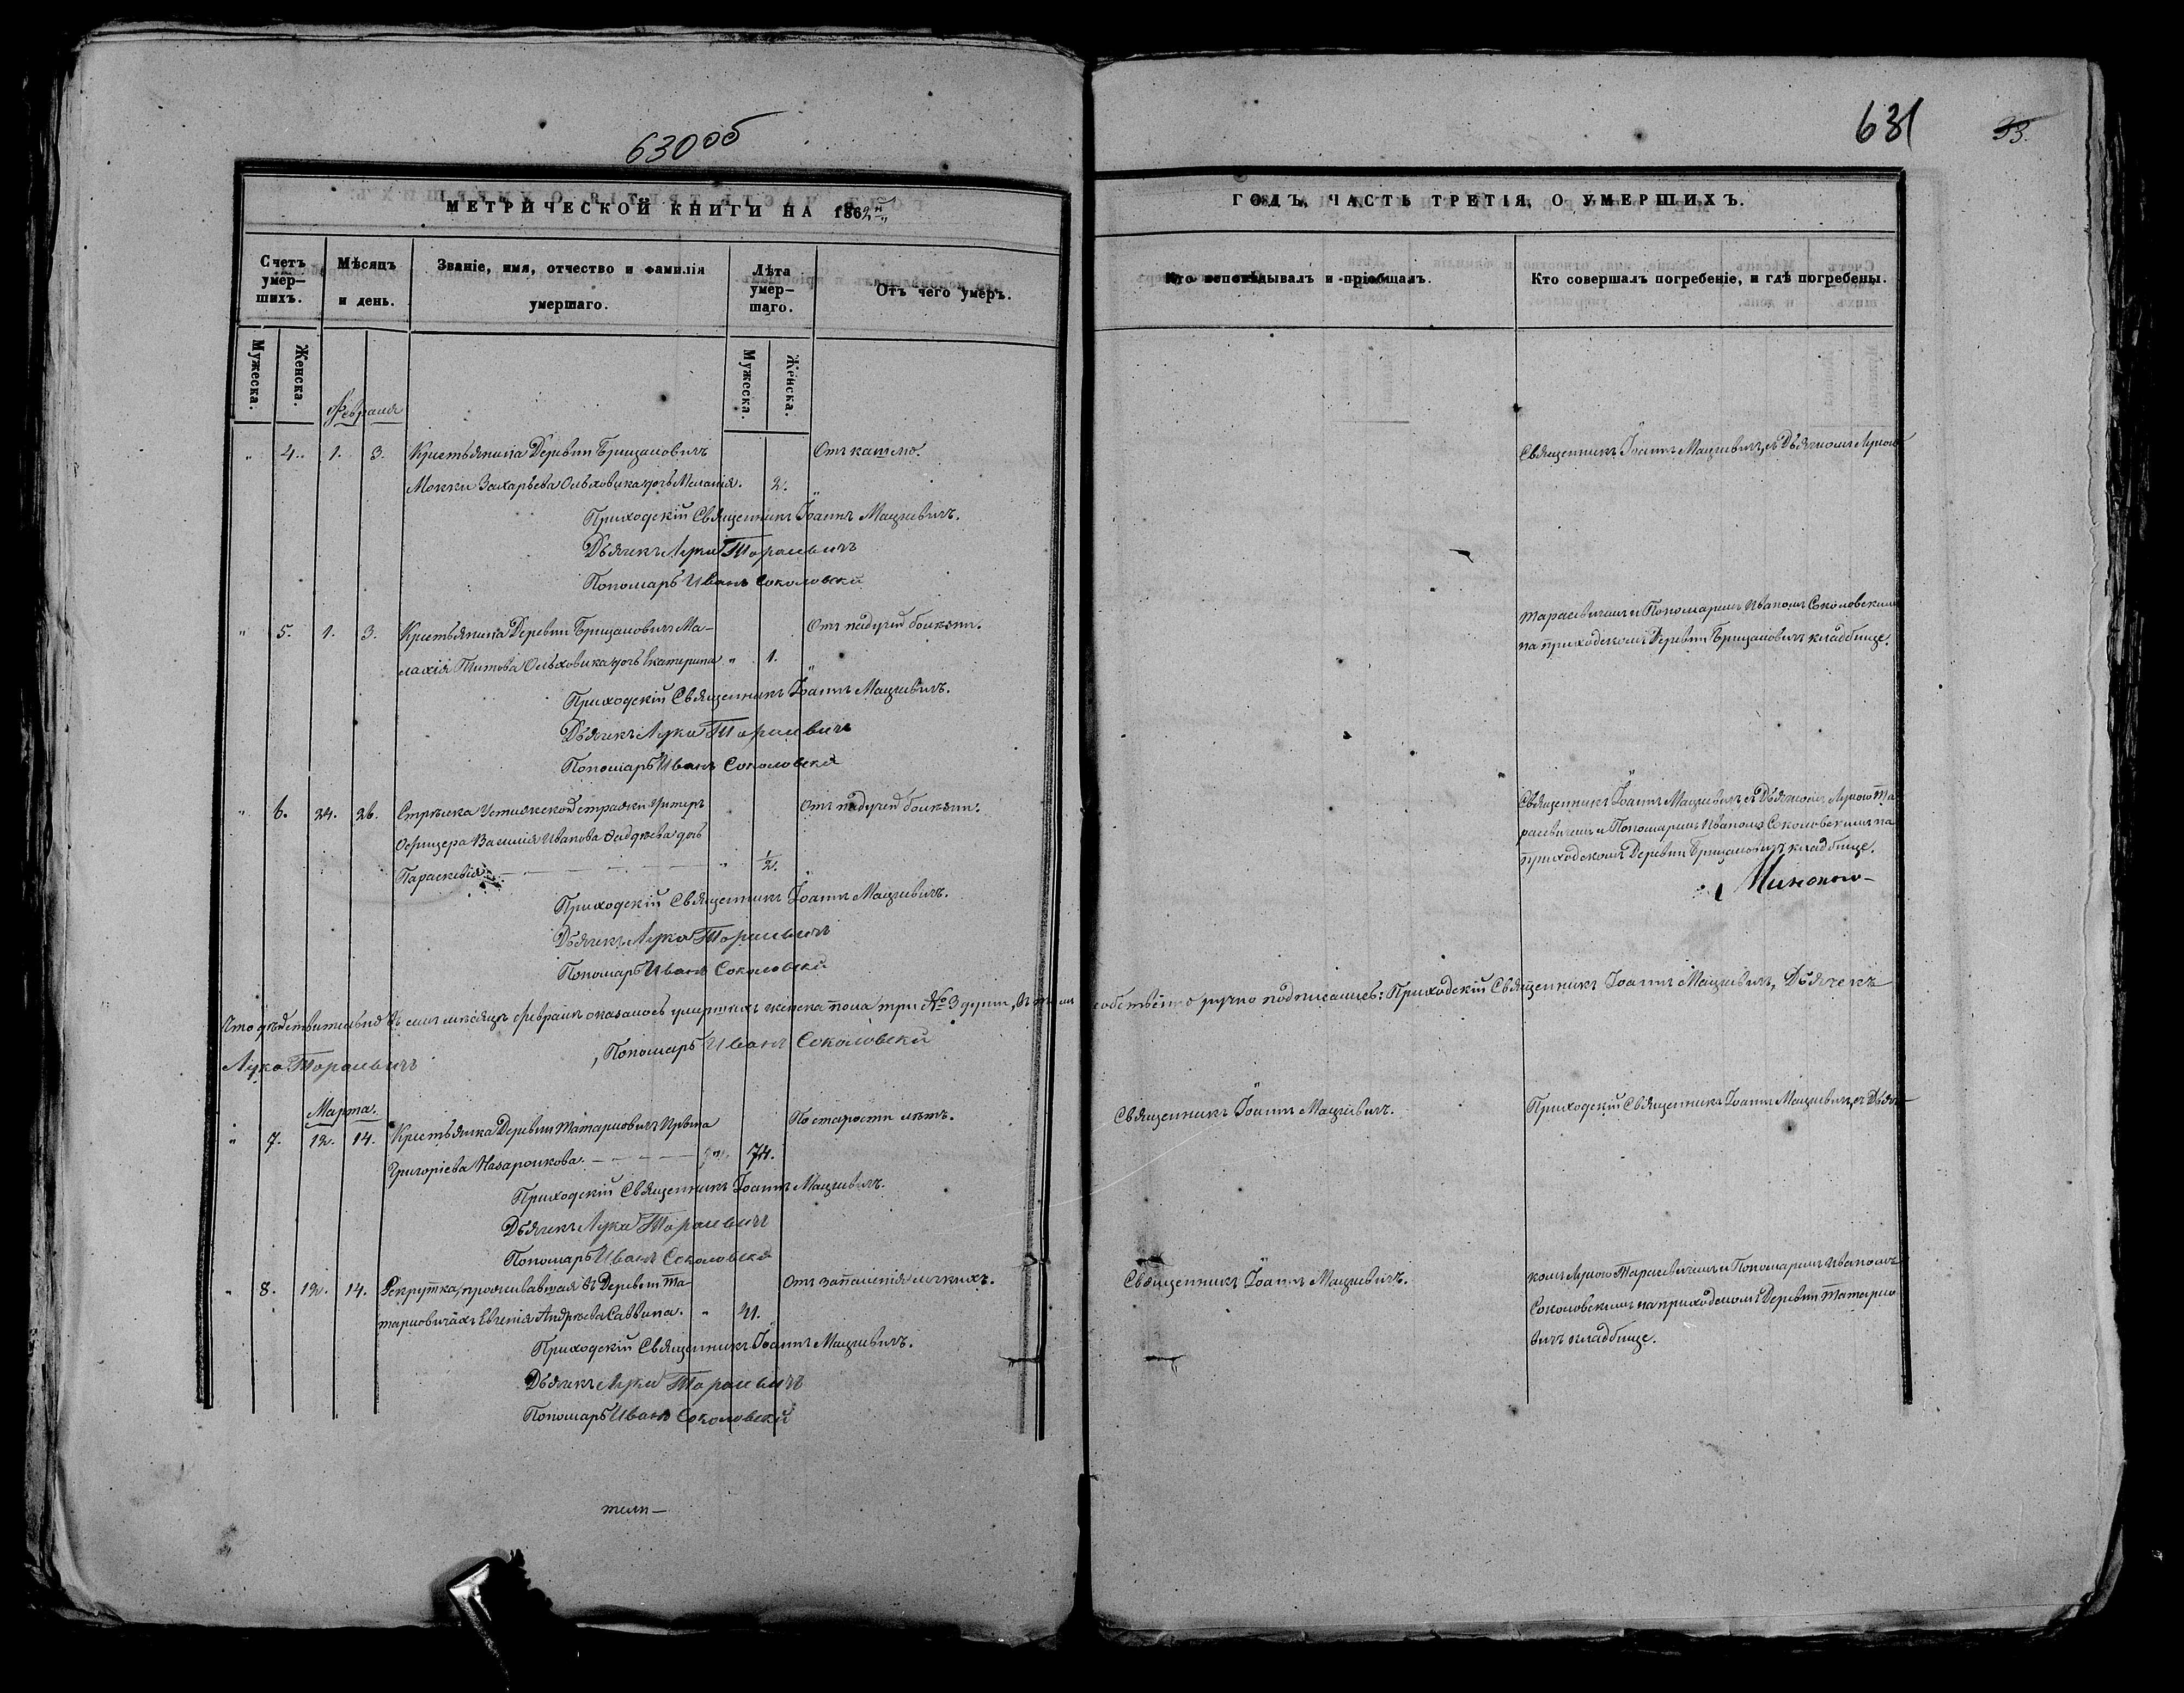 630об
МЕТРИЧЕСКОЙ КНИГИ НА 1862й
Счетъ умер-шихъ.
Мѣсяцъ и день.
Званіе, имя, отчество и фамилія умершаго.
Лѣта умер-шаго.
Отъ чего умеръ.
Мужеска.
Женска.
Мужеска.
Женска.
Февраля
" 4. 1. 3. Крестьянина Деревни Брицаловичъ Отъ кашлю.
Мокки Захарьева Ольховика дочь Меланія. 2. "
Приходскій Священникъ Іоаннъ Мацкевичъ.
Дьячекъ Лука Тарасевичъ
Пономарь Иванъ Соколовскій
" 5. 1. 3. Крестьянина Деревни Брицаловичъ Ма- Отъ падучей болѣзни.
лахія Титова Ольховика дочь Екатерина " 1. "
Приходскій Священникъ Іоаннъ Мацкевичъ.
Дьячекъ Лука Тарасевичъ
Пономарь Иванъ Соколовскій
" 6. 24. 26. Стрѣлка стражи Унтеръ Отъ падучей болѣзни.
Офицера Василія Иванова дочь
Параскевія " ½. "
Приходскій Священникъ Іоаннъ Мацкевичъ.
Дьячекъ Лука Тарасевичъ
Пономарь Иванъ Соколовскій
Что дѣйствительно въ семъ мѣсяцѣ февралѣ оказалось умершихъ женска пола три № 3 души, въ томъ собственноручно подписались: Приходскій Священникъ Іоаннъ Мацкевичъ, Дьячекъ
Лука Тарасевичъ, Пономарь Иванъ Соколовскій
Марта.
" 7. 12. 14. Крестьянка Деревни Татарковичъ Ирына По старости лѣтъ.
Григоріева Назарчикова. " 74.
Приходскій Священникъ Іоаннъ Мацкевичъ.
Дьячекъ Лука Тарасевичъ
Пономарь Иванъ Соколовскій
" 8. 12. 14. Рекрутка, проживавшая въ Деревни Та- Отъ запаленія легкихъ.
тарковичахъ Евгенія Андреева Саввина. " 21.
Приходскій Священникъ Іоаннъ Мацкевичъ.
Дьячекъ Лука Тарасевичъ
Пономарь Иванъ Соколовскій
631
33.
ГОДЪ, ЧАСТЬ ТРЕТІЯ, О УМЕРШИХЪ.
Кто исповѣдывалъ и пріобщалъ.
Кто совершалъ погребеніе, и гдѣ погребены.
Священникъ Іоаннъ Мацкевичъ, съ Дьячкомъ Лукою
Тарасевичемъ и Пономаремъ Иваномъ Соколовскимъ
на приходскомъ Деревни Брицаловичъ кладбище.
Священникъ Іоаннъ Мацкевичъ съ Дьячкомъ Лукою Та
расевичемъ и Пономаремъ Иваномъ Соколовскимъ на
приходскомъ Деревни Брицаловичъ кладбище.
Священникъ Іоаннъ Мацкевичъ.
Приходскій Священникъ Іоаннъ Мацкевичъ, съ Дьяч-
Священникъ Іоаннъ Мацкевичъ.
комъ Лукою Тарасевичемъ и Пономаремъ Иваномъ
Соколовскимъ на приходскомъ Деревни Татарко
вичъ кладбище.